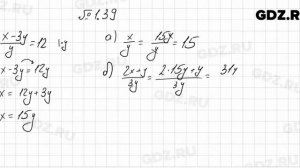 GDZ.RU
№ 1.39
x-3y/y = 12 |·y
x-3y = 12y
x = 12y+3y
x = 15y
а) x/y = 15y/y = 15
б) 2x+y/3y = 2·15y+y/3y = 31y
GDZ.RU